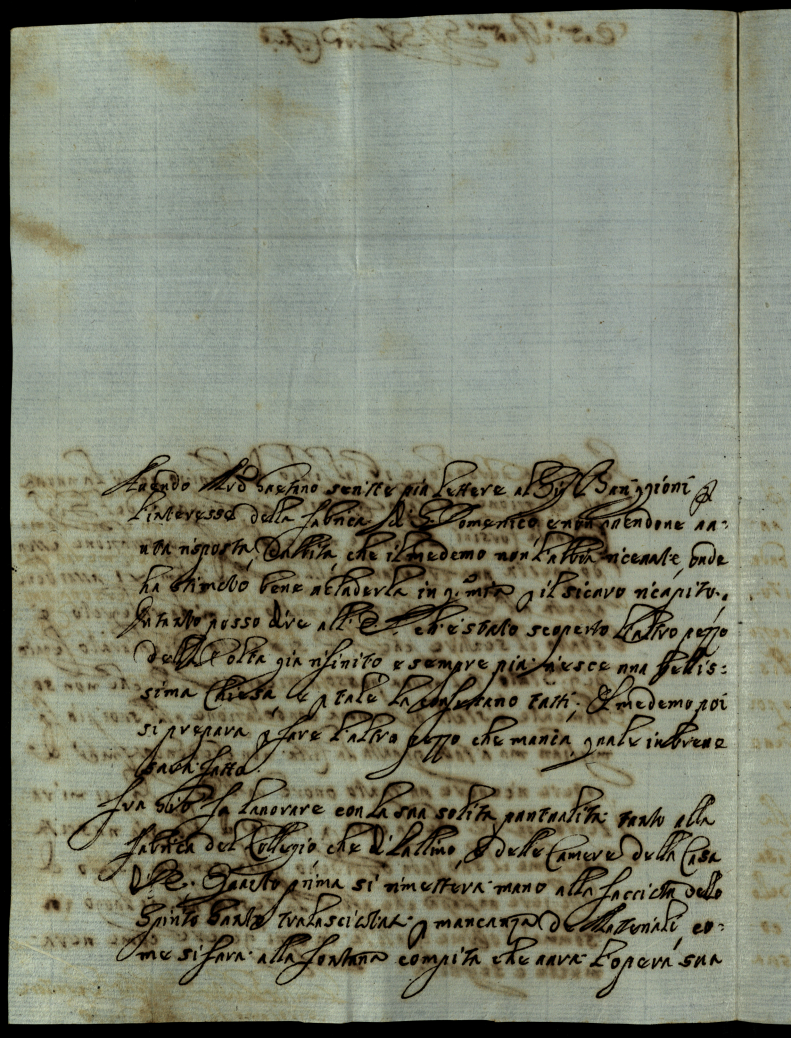 Auendo Mro Gaetano scritte più lettere al Sig. Bariggioni p
l'interesse della fabrica di S. Domenico e non auendone au:
uta risposta, dubita che il medemo non l'abbia riceuute, onde
ha stimato bene acluderla in q.ta mia p il sicuro ricapito.
Intanto posso dire all' che è stato scoperto l'altro pezzo
della Volta già rifinito e sempre più riesce una bellis:
sima Chiesa, e p tale la confessano tutti; Il medemo poi
si prepara p fare l'altro pezzo che manca, quale in breue
sarà fatto.
fa lauorare con la sua solita puntualità tanto alla
fabrica del Collegio, che di Latino, e delle Camere della Casa
Quanto prima si rimetterà mano alla facciata dello
Spirito Santo tralasciata p mancanza de Materiali, co:
me si farà alla fontana compita che aurà l'opera sua